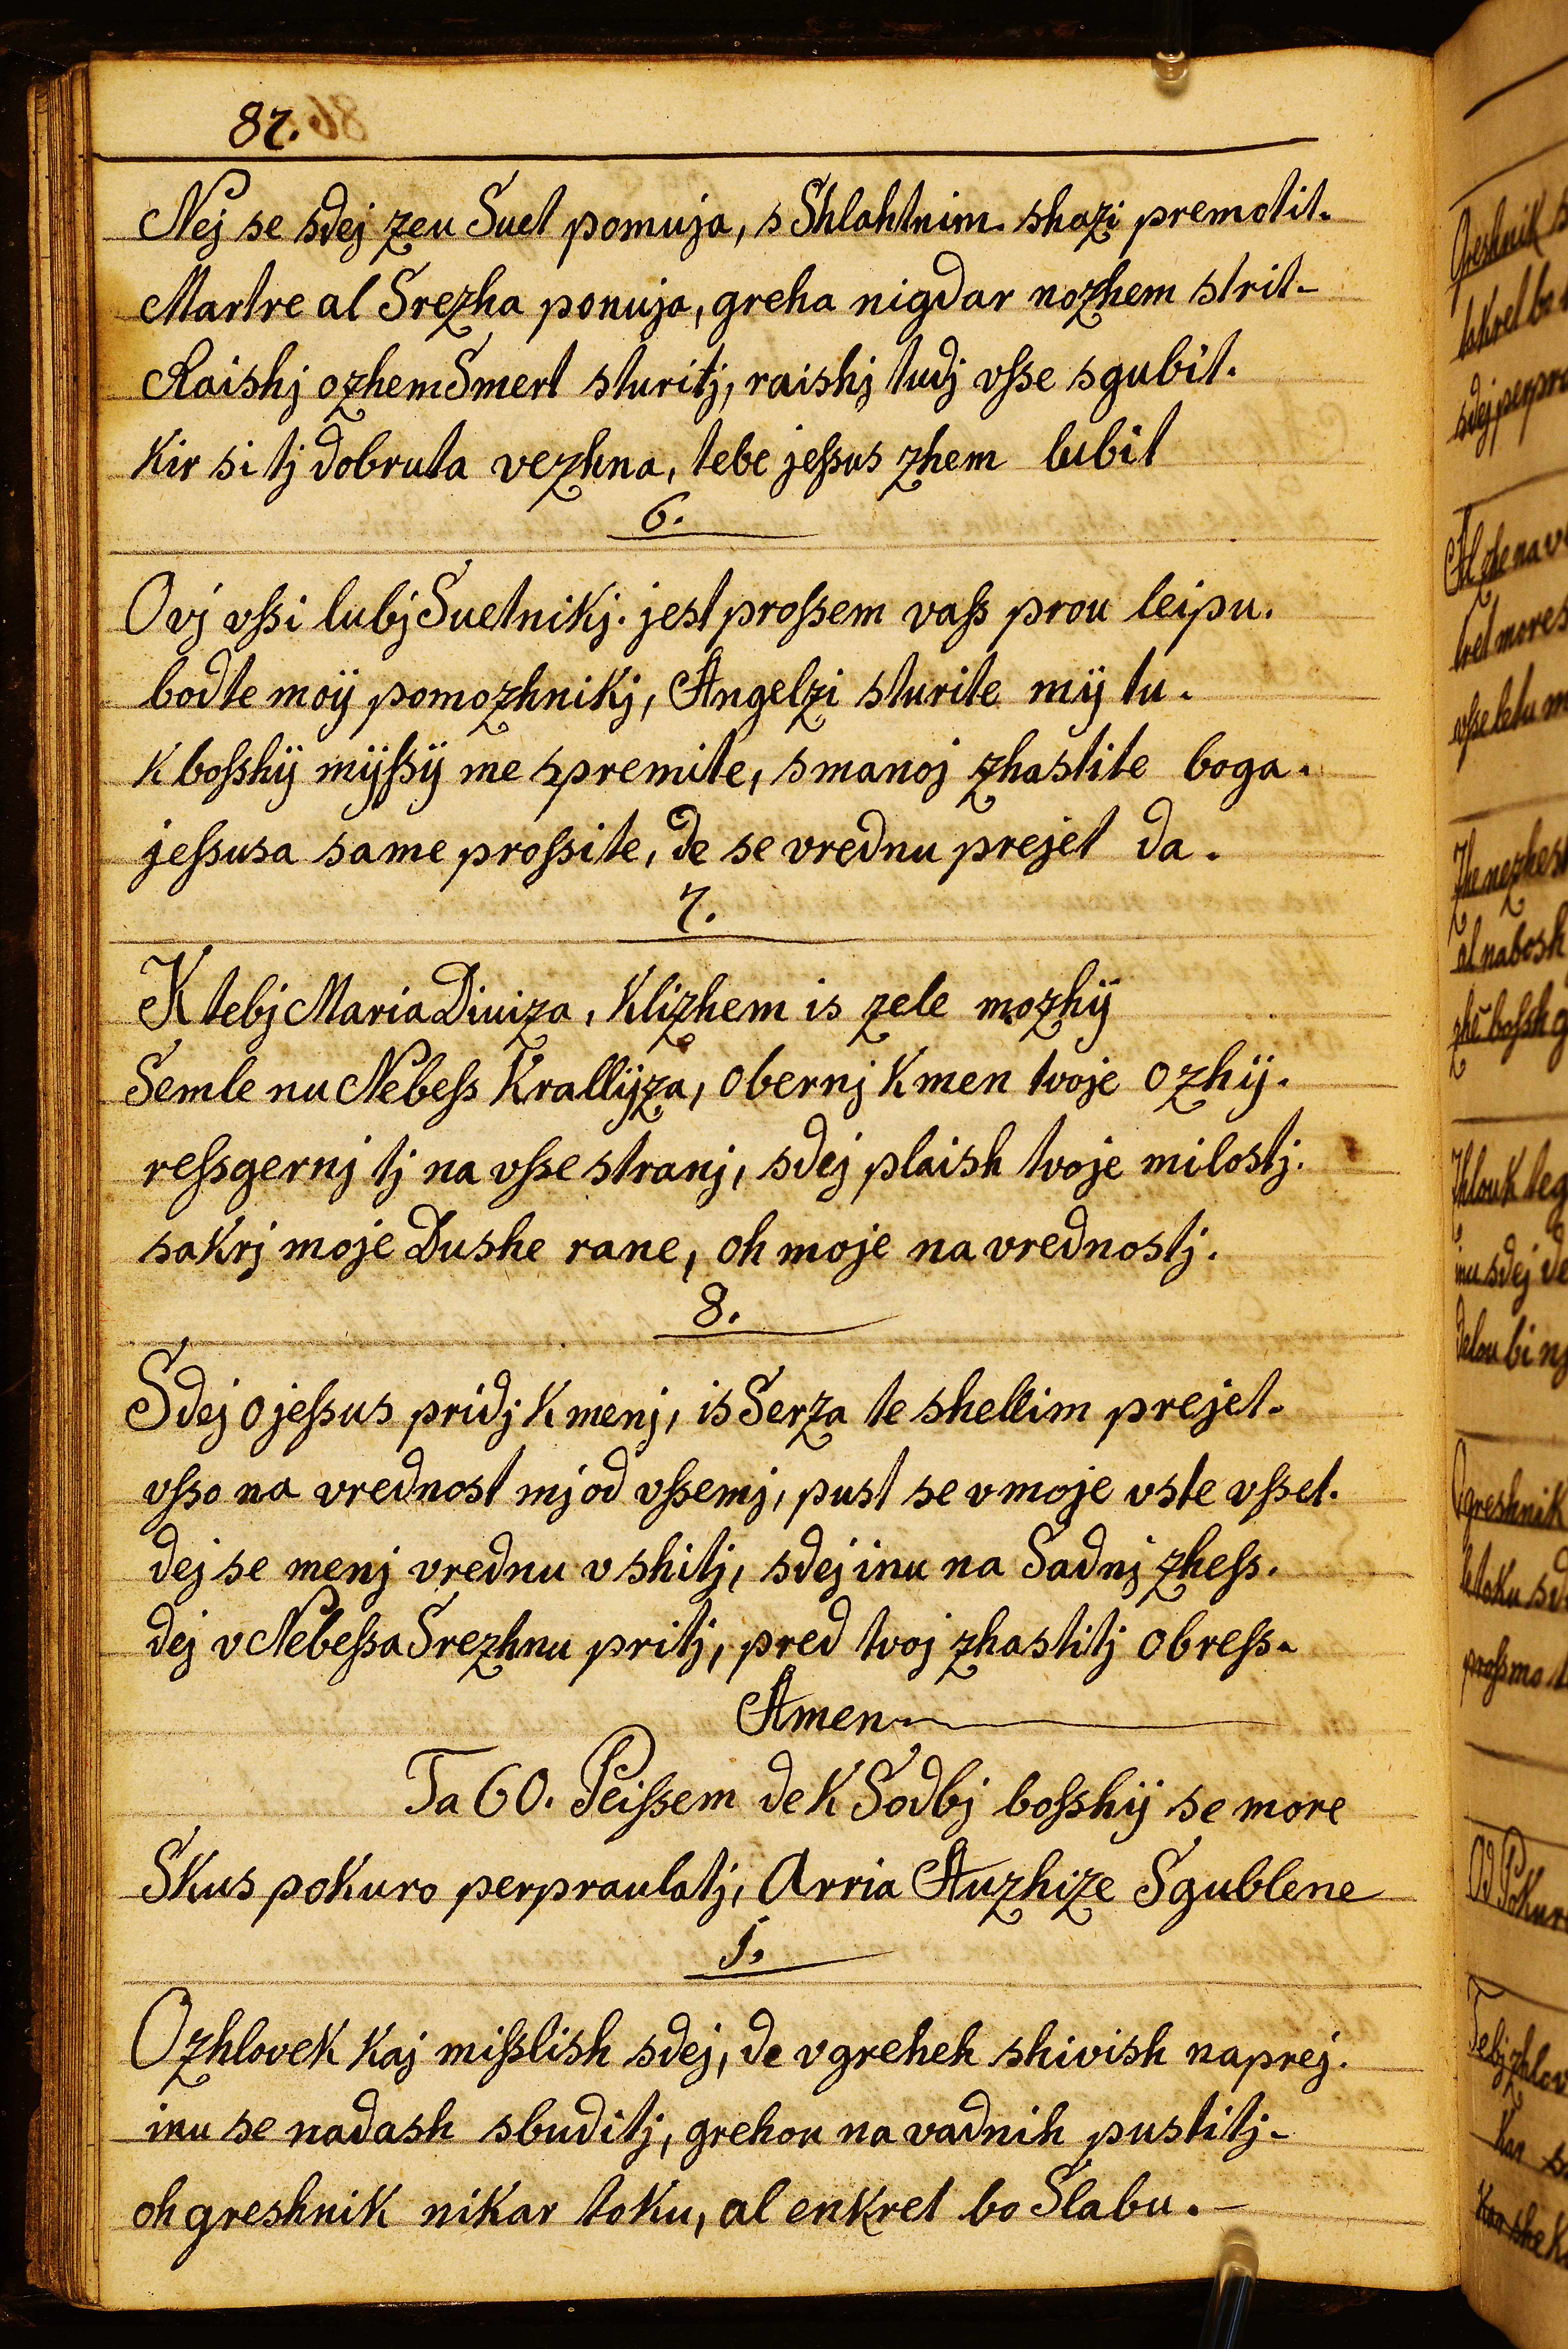 87.
Nej se sdej zeu Suet pomuja, s Shlahtnim. shazi premotit.
Martre al Srezha ponuja, greha nigdar nozhem strit-
Raishj ozhem Smert sturitj, raishj tudj vsse sgubit.
Kir si tj dobruta vezhna, tebe jessus zhem lubit
6.
O vj vssi lubj Suetnikj. jest prossem vass prou leipu.
bodte moÿ pomozhnikj, Angelzi sturite mÿ tu.
K bosshÿ mÿssÿ me spremite, smanoj zhastite boga.
jessusa same prossite, de se vrednu prejet da.
7.
K tebj Maria Diviza, Klizhem is zele mozhÿ
Semle nu Nebess Krallÿza, obernj K men tvoje ozhÿ.
ressgernj tj na vsse stranj, sdej plaish tvoje milostj.
sakrj moje Dushe rane, oh moje na vrednostj.
8.
Sdej o jessus pridj K menj, is Serza te shellim prejet.
vsso na vrednost mj od vssemj, pust se v moje vste vsset.
dej se menj vrednu v shitj, sdej inu na Sadnj zhess.
dej v Nebessa Srezhnu pritj, pred tvoj zhastitj obress.
Amen
Ta 60. Peissem de K Sodbj bosshÿ se more
Skus pokuro perpraulatj, Arria Auzhize Sgublene
1.
O zhlovek kaj misslish sdej, de v greheh shivish naprej.
inu se nadash sbuditj, grehou na vadnih pustitj-
oh greshnik nikar toku, al enkret bo Slabu.-